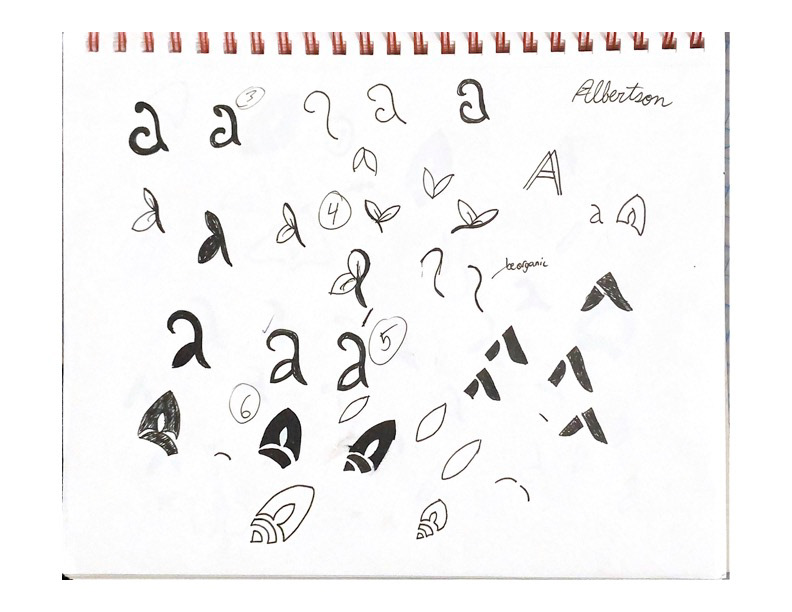 a a 3 a a Albertson
A
4 a
a a a
be organic
a a a 5
6